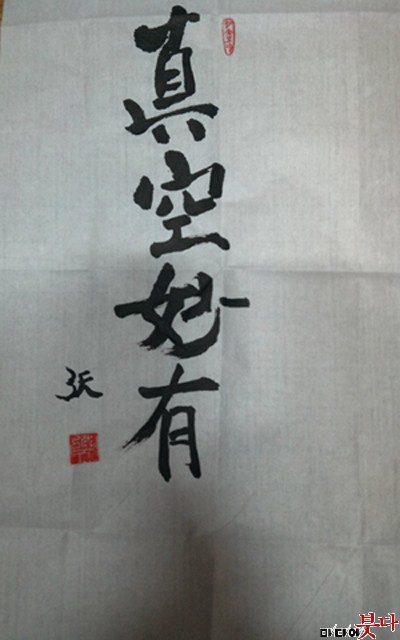 真空妙有
张
미디어붓다